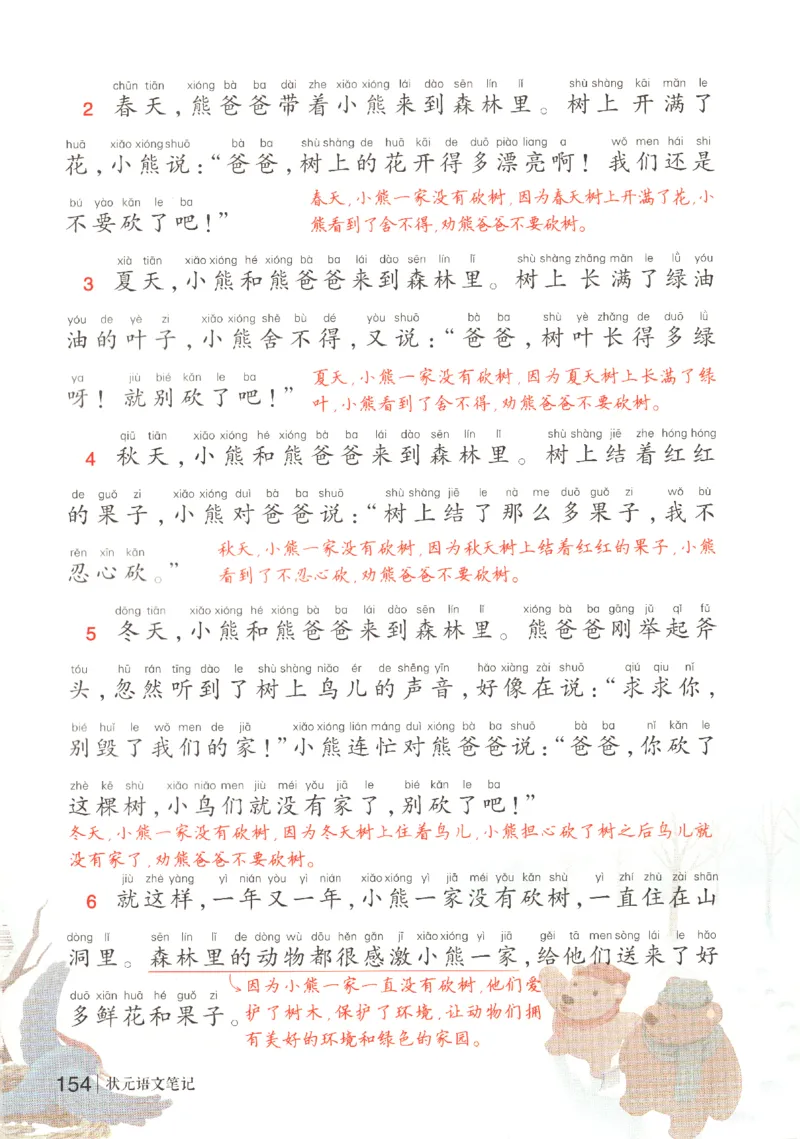 chūn tiān xióng bà ba dài zhe xiǎo xióng lái dào sēn lín lǐ shù shàng kāi mǎn le
2 春天，熊爸爸带着小熊来到森林里。树上开满了
huā xiǎo xióng shuō bà ba shù shàng de huā kāi de duō piào liang a wǒ men hái shi
花，小熊说：“爸爸，树上的花开得多漂亮啊！我们还是
bú yào kǎn le ba
不要砍了吧！”
春天，小熊一家没有砍树，因为春天树上开满了花，小
熊看到了舍不得，劝熊爸爸不要砍树。
xià tiān xiǎo xióng hé xióng bà ba lái dào sēn lín lǐ shù shàng zhǎng mǎn le lǜ yóu
3 夏天，小熊和熊爸爸来到森林里。树上长满了绿油
yóu de yè zi xiǎo xióng shě bù dé yòu shuō bà ba shù yè zhǎng de duō lǜ
油的叶子，小熊舍不得，又说：“爸爸，树叶长得多绿
ya jiù bié kǎn le ba
呀！就别砍了吧！”
夏天，小熊一家没有砍树，因为夏天树上长满了绿
叶，小熊看到了舍不得，劝熊爸爸不要砍树。
qiū tiān xiǎo xióng hé xióng bà ba lái dào sēn lín lǐ shù shàng jiē zhe hóng hóng
4 秋天，小熊和熊爸爸来到森林里。树上结着红红
de guǒ zi xiǎo xióng duì bà ba shuō shù shàng jiē le nà me duō guǒ zi wǒ bù
的果子，小熊对爸爸说：“树上结了那么多果子，我不
rěn xīn kǎn
忍心砍。”
秋天，小熊一家没有砍树，因为秋天树上结着红红的果子，小熊
看到了不忍心砍，劝熊爸爸不要砍树。
dōng tiān xiǎo xióng hé xióng bà ba lái dào sēn lín lǐ xióng bà ba gāng jǔ qǐ fǔ
5 冬天，小熊和熊爸爸来到森林里。熊爸爸刚举起斧
tóu hū rán tīng dào le shù shàng niǎo ér de shēng yīn hǎo xiàng zài shuō qiú qiu nǐ
头，忽然听到了树上鸟儿的声音，好像在说：“求求你，
bié huǐ le wǒ men de jiā xiǎo xióng lián máng duì xióng bà ba shuō bà ba nǐ kǎn le
别毁了我们的家！”小熊连忙对熊爸爸说：“爸爸，你砍了
zhè kē shù xiǎo niǎo men jiù méi yǒu jiā le bié kǎn le ba
这棵树，小鸟们就没有家了，别砍了吧！”
冬天，小熊一家没有砍树，因为冬天树上住着鸟儿，小熊担心砍了树之后鸟儿就
没有家了，劝熊爸爸不要砍树。
jiù zhè yàng yì nián yòu yì nián xiǎo xióng yì jiā méi yǒu kǎn shù yì zhí zhù zài shān
6 就这样，一年又一年，小熊一家没有砍树，一直住在山
dòng lǐ sēn lín lǐ de dòng wù dōu hěn gǎn jī xiǎo xióng yì jiā gěi tā men sòng lái le hǎo
洞里。森林里的动物都很感激小熊一家，给他们送来了好
duō xiān huā hé guǒ zi
多鲜花和果子。
因为小熊一家一直没有砍树，他们爱
护了树木，保护了环境，让动物们拥
有美好的环境和绿色的家园。
154 状元语文笔记